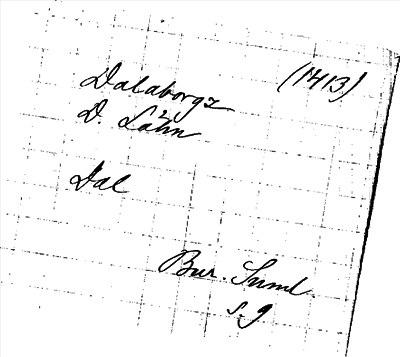 Dalaborgz (1413)
D. Lähn
Dal
Bur. Suml.
s. 9